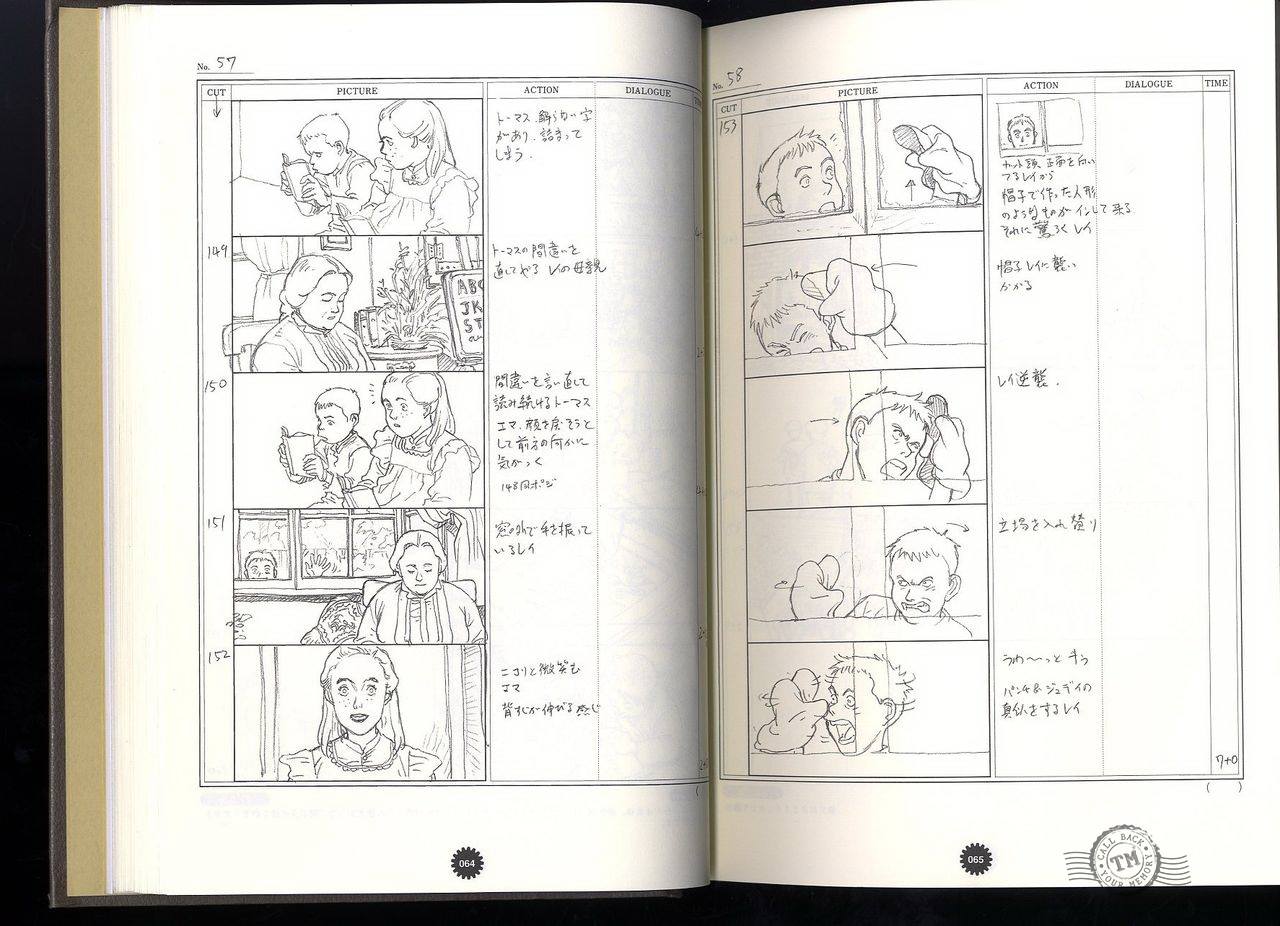 No. 57
CUT PICTURE ACTION DIALOGUE
トーマス、解らない字
があり、詰まって
しまう。
149
トーマスの間違いを
直してやる レイの母親
ABC
JK
ST
150
間違いを言い直して
読み続けるトーマス
エマ、顔を戻そうと
して前方の何かに
気がつく
148同ポジ
151
窓の外で手を振って
いるレイ
152
ニコリと微笑む
エマ
背すじが伸びる感じ
064
No. 58
CUT PICTURE ACTION DIALOGUE TIME
153
カット頭、正面を向い
てるレイから
帽子で作った人形
のようなものがインして来る
それに驚くレイ
帽子レイに襲い
かかる
レイ逆襲。
立場を入れ替り
うわ〜っと
パンチ&ジュディの
真似をするレイ
7+0
( )
065
CALL BACK
TM
YOUR MEMORY